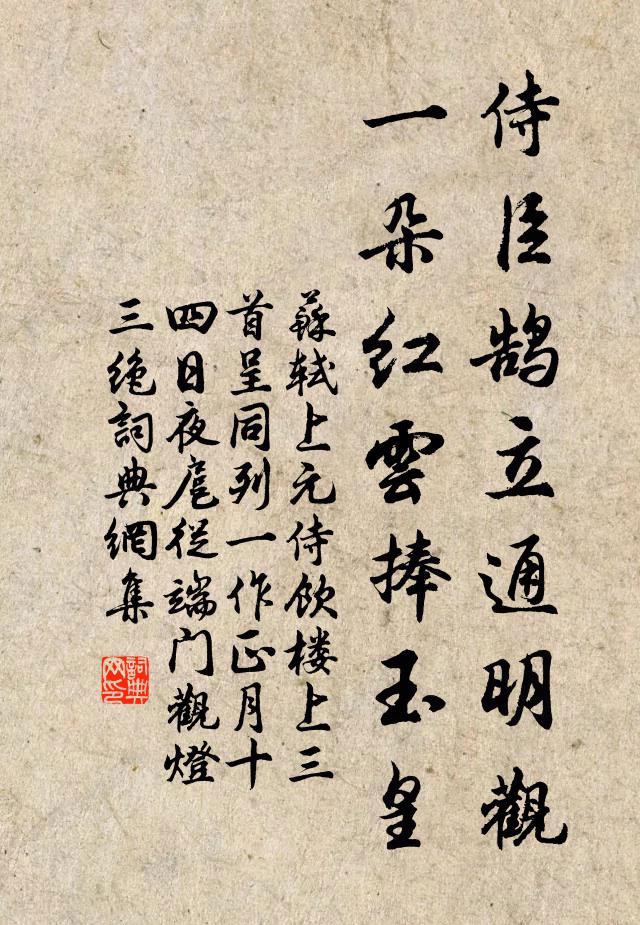 侍臣鹄立通明觀
一朵紅雲捧玉皇
蘇軾上元侍飲楼上三
首呈同列一作正月十
四日夜扈從端門觀燈
三绝詞典網集
詞典网印